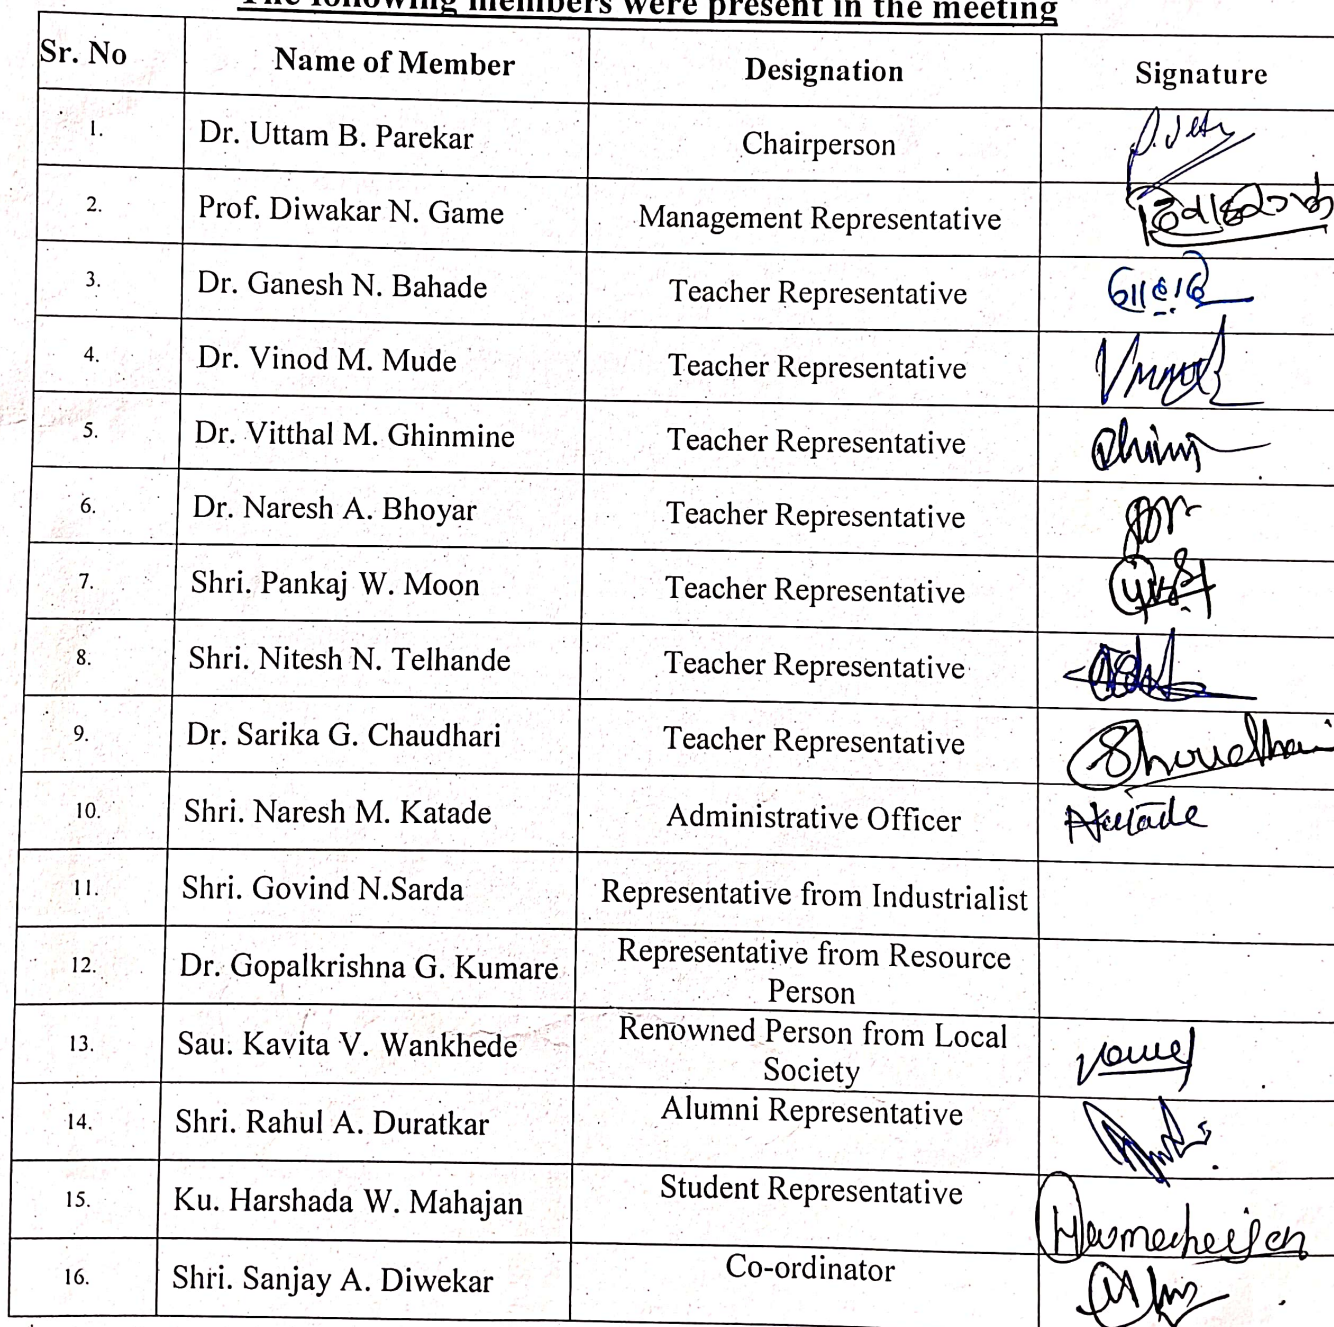 The following members were present in the meeting
Sr. No Name of Member Designation Signature
1. Dr. Uttam B. Parekar Chairperson
2. Prof. Diwakar N. Game Management Representative
3. Dr. Ganesh N. Bahade Teacher Representative
4. Dr. Vinod M. Mude Teacher Representative
5. Dr. Vitthal M. Ghinmine Teacher Representative
6. Dr. Naresh A. Bhoyar Teacher Representative
7. Shri. Pankaj W. Moon Teacher Representative
8. Shri. Nitesh N. Telhande Teacher Representative
9. Dr. Sarika G. Chaudhari Teacher Representative
10. Shri. Naresh M. Katade Administrative Officer
11. Shri. Govind N.Sarda Representative from Industrialist
12. Dr. Gopalkrishna G. Kumare Representative from Resource
Person
13. Sau. Kavita V. Wankhede Renowned Person from Local
Society
14. Shri. Rahul A. Duratkar Alumni Representative
15. Ku. Harshada W. Mahajan Student Representative
16. Shri. Sanjay A. Diwekar Co-ordinator